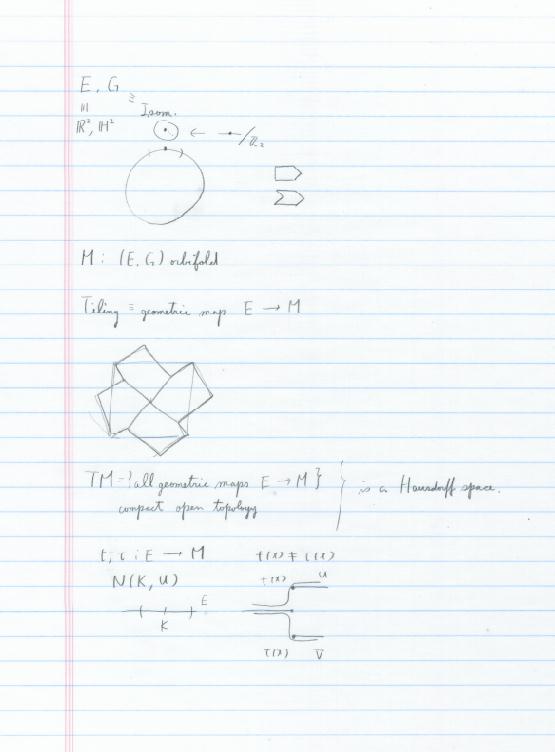 E, G
≅ Isom.
ℝ², ℍ²
M : (E, G) orbifold
Tiling ≡ geometric map E → M
TM = { all geometric maps E → M } is a Hausdorff space.
compact open topology
E → M
N(K, U)
t(x) U
E
K
V